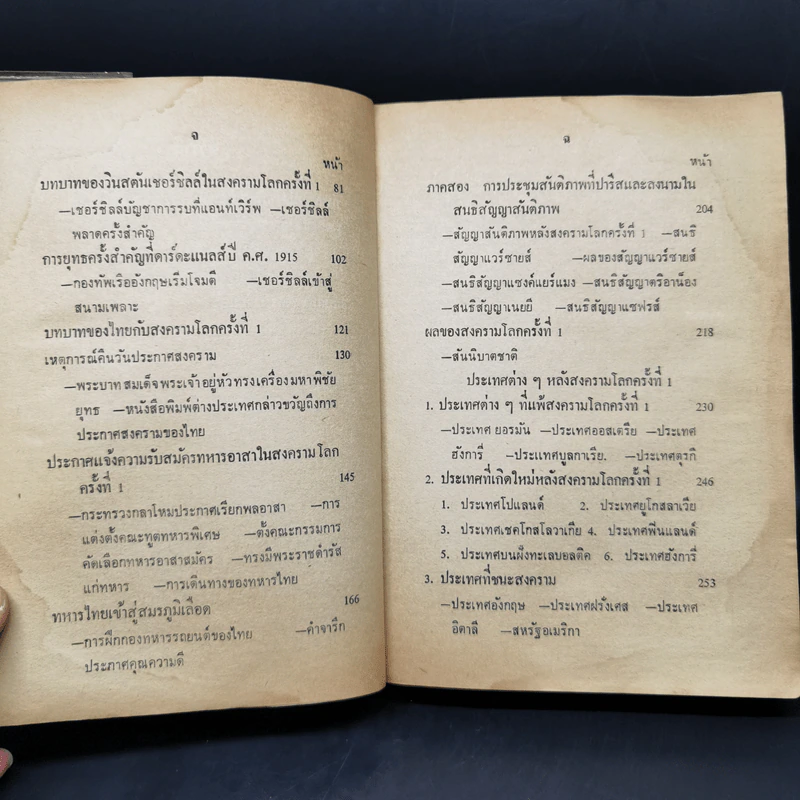 จ
หน้า
บทบาทของวินสตันเชอร์ชิลล์ในสงครามโลกครั้งที่ 1 81
—เชอร์ชิลล์บัญชาการรบที่แอนท์เวิร์พ —เชอร์ชิลล์
พลาดครั้งสำคัญ
การยุทธครั้งสำคัญที่ดาร์ดะแนลส์ปี ค.ศ. 1915 102
—กองทัพเรืออังกฤษเริ่มโจมตี —เชอร์ชิลล์เข้าสู่
สนามเพลาะ
บทบาทของไทยกับสงครามโลกครั้งที่ 1 121
เหตุการณ์คืนวันประกาศสงคราม 130
—พระบาทสมเด็จพระเจ้าอยู่หัวทรงเครื่องมหาพิชัย
ยุทธ —หนังสือพิมพ์ต่างประเทศกล่าวขวัญถึงการ
ประกาศสงครามของไทย
ประกาศแจ้งความรับสมัครทหารอาสาในสงครามโลก
ครั้งที่ 1 145
—กระทรวงกลาโหมประกาศเรียกพลอาสา —การ
แต่งตั้งคณะทูตทหารพิเศษ —ตั้งคณะกรรมการ
คัดเลือกทหารอาสาสมัคร —ทรงมีพระราชดำรัส
แก่ทหาร —การเดินทางของทหารไทย
ทหารไทยเข้าสู่สมรภูมิเลือด 166
—การฝึกกองทหารรถยนต์ของไทย —คำจารึก
ประกาศคุณความดี
ฉ
หน้า
ภาคสอง การประชุมสันติภาพที่ปารีสและลงนามใน
สนธิสัญญาสันติภาพ 204
—สัญญาสันติภาพหลังสงครามโลกครั้งที่ 1 —สนธิ
สัญญาแวร์ซายส์ —ผลของสัญญาแวร์ซายส์
—สนธิสัญญาแซงค์แยร์แมง —สนธิสัญญาตริอาน็อง
—สนธิสัญญาเนยยี —สนธิสัญญาแซฟรส์
ผลของสงครามโลกครั้งที่ 1 218
—สันนิบาตชาติ
ประเทศต่าง ๆ หลังสงครามโลกครั้งที่ 1
1. ประเทศต่าง ๆ ที่แพ้สงครามโลกครั้งที่ 1 230
—ประเทศ ยอรมัน —ประเทศออสเตรีย —ประเทศ
ฮังการี —ประเทศบูลกาเรีย. —ประเทศตุรกี
2. ประเทศที่เกิดใหม่หลังสงครามโลกครั้งที่ 1 246
1. ประเทศโปแลนด์ 2. ประเทศยูโกสลาเวีย
3. ประเทศเชคโกสโลวาเกีย 4. ประเทศฟินแลนด์
5. ประเทศบนฝั่งทะเลบอลติค 6. ประเทศฮังการี
3. ประเทศที่ชนะสงคราม 253
—ประเทศอังกฤษ —ประเทศฝรั่งเศส —ประเทศ
อิตาลี —สหรัฐอเมริกา